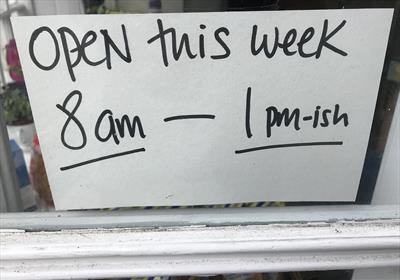 OPEN this week
8am — 1pm-ish